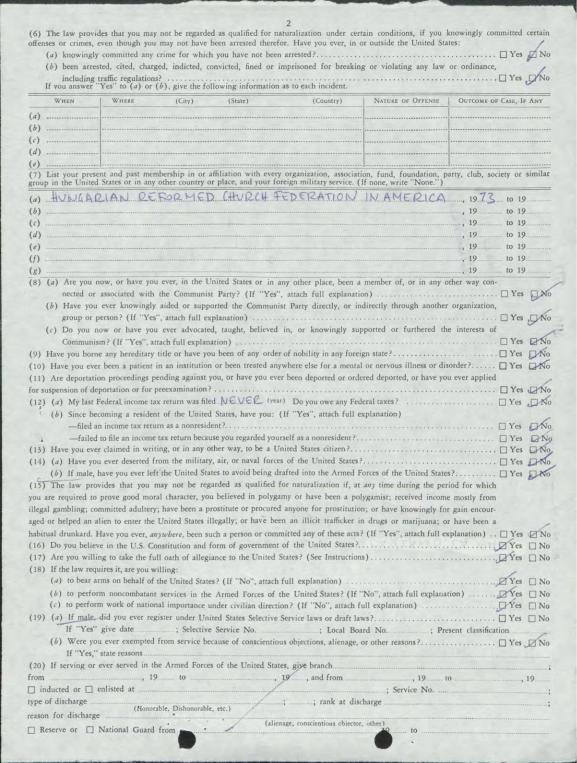 2
(6) The law provides that you may not be regarded as qualified for naturalization under certain conditions, if you knowingly committed certain
offenses or crimes, even though you may not have been arrested therefor. Have you ever, in or outside the United States:
(a) knowingly committed any crime for which you have not been arrested? ☐ Yes ☑ No
(b) been arrested, cited, charged, indicted, convicted, fined or imprisoned for breaking or violating any law or ordinance,
including traffic regulations? ☐ Yes ☑ No
If you answer "Yes" to (a) or (b), give the following information as to each incident.
WHEN WHERE (City) (State) (Country) NATURE OF OFFENSE OUTCOME OF CASE, IF ANY
(a)
(b)
(c)
(d)
(e)
(7) List your present and past membership in or affiliation with every organization, association, fund, foundation, party, club, society or similar
group in the United States or in any other country or place, and your foreign military service. (If none, write "None.")
(a) HUNGARIAN REFORMED CHURCH FEDERATION IN AMERICA , 1973 to 19
(b) , 19 to 19
(c) , 19 to 19
(d) , 19 to 19
(e) , 19 to 19
(f) , 19 to 19
(g) , 19 to 19
(8) (a) Are you now, or have you ever, in the United States or in any other place, been a member of, or in any other way con-
nected or associated with the Communist Party? (If "Yes", attach full explanation) ☐ Yes ☑ No
(b) Have you ever knowingly aided or supported the Communist Party directly, or indirectly through another organization,
group or person? (If "Yes", attach full explanation) ☐ Yes ☑ No
(c) Do you now or have you ever advocated, taught, believed in, or knowingly supported or furthered the interests of
Communism? (If "Yes", attach full explanation) ☐ Yes ☑ No
(9) Have you borne any hereditary title or have you been of any order of nobility in any foreign state? ☐ Yes ☑ No
(10) Have you ever been a patient in an institution or been treated anywhere else for a mental or nervous illness or disorder? ☐ Yes ☑ No
(11) Are deportation proceedings pending against you, or have you ever been deported or ordered deported, or have you ever applied
for suspension of deportation or for preexamination? ☐ Yes ☑ No
(12) (a) My last Federal income tax return was filed NEVER (year) Do you owe any Federal taxes? ☐ Yes ☑ No
(b) Since becoming a resident of the United States, have you: (If "Yes", attach full explanation)
—filed an income tax return as a nonresident? ☐ Yes ☑ No
—failed to file an income tax return because you regarded yourself as a nonresident? ☐ Yes ☑ No
(13) Have you ever claimed in writing, or in any other way, to be a United States citizen? ☐ Yes ☑ No
(14) (a) Have you ever deserted from the military, air, or naval forces of the United States? ☐ Yes ☑ No
(b) If male, have you ever left the United States to avoid being drafted into the Armed Forces of the United States? ☐ Yes ☑ No
(15) The law provides that you may not be regarded as qualified for naturalization if, at any time during the period for which
you are required to prove good moral character, you believed in polygamy or have been a polygamist; received income mostly from
illegal gambling; committed adultery; have been a prostitute or procured anyone for prostitution; or have knowingly for gain encour-
aged or helped an alien to enter the United States illegally; or have been an illicit trafficker in drugs or marijuana; or have been a
habitual drunkard. Have you ever, anywhere, been such a person or committed any of these acts? (If "Yes", attach full explanation) ☐ Yes ☑ No
(16) Do you believe in the U.S. Constitution and form of government of the United States? ☑ Yes ☐ No
(17) Are you willing to take the full oath of allegiance to the United States? (See Instructions) ☑ Yes ☐ No
(18) If the law requires it, are you willing:
(a) to bear arms on behalf of the United States? (If "No", attach full explanation) ☑ Yes ☐ No
(b) to perform noncombatant services in the Armed Forces of the United States? (If "No", attach full explanation) ☑ Yes ☐ No
(c) to perform work of national importance under civilian direction? (If "No", attach full explanation) ☑ Yes ☐ No
(19) (a) If male, did you ever register under United States Selective Service laws or draft laws? ☐ Yes ☐ No
If "Yes" give date ; Selective Service No. ; Local Board No. ; Present classification
(b) Were you ever exempted from service because of conscientious objections, alienage, or other reasons? ☐ Yes ☑ No
If "Yes," state reasons
(20) If serving or ever served in the Armed Forces of the United States, give branch ;
from , 19 to , 19 , and from , 19 to , 19
☐ inducted or ☐ enlisted at ; Service No. ;
type of discharge ; ; rank at discharge ;
(Honorable, Dishonorable, etc.)
reason for discharge
(alienage, conscientious objector, other)
☐ Reserve or ☐ National Guard from 19 to